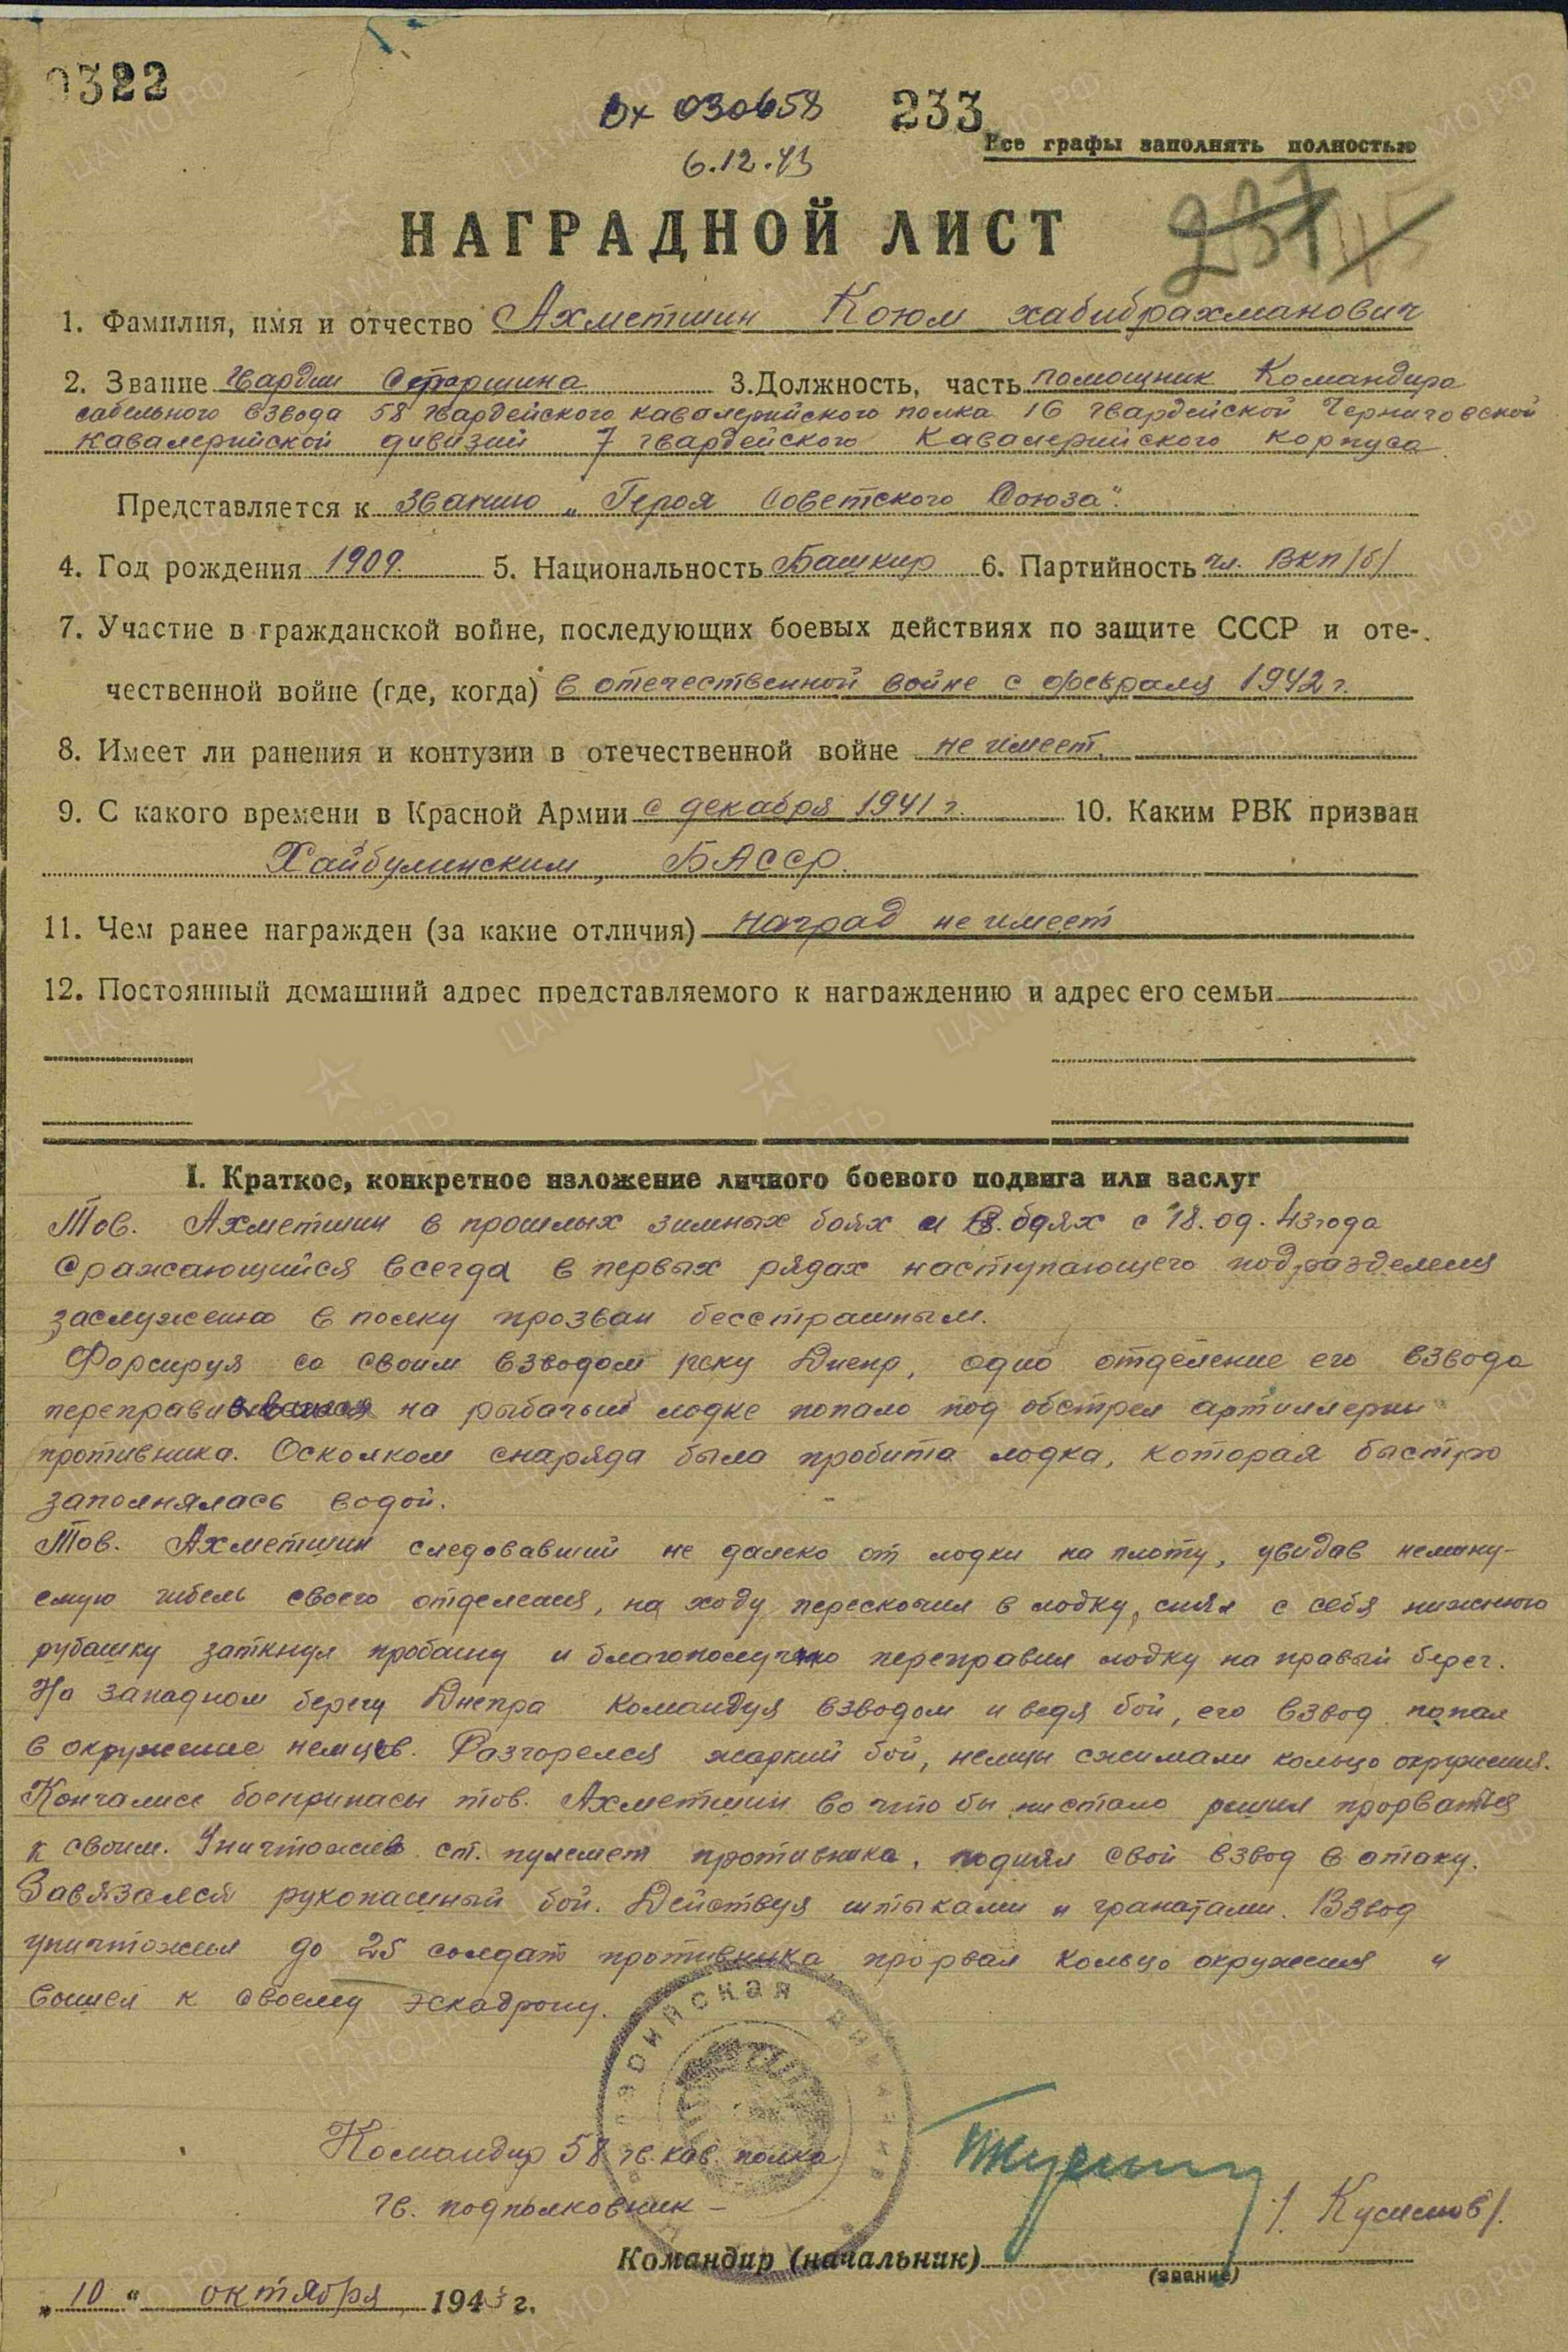 0322
Вх 030658
233
Все графы заполнять полностью
6.12.43
237
НАГРАДНОЙ ЛИСТ
1. Фамилия, имя и отчество Ахметшин Коюм хабибрахманович
2. Звание гвардии Старшина 3. Должность, часть помощник Командира
сабельного взвода 58 гвардейского кавалерийского полка 16 гвардейской Черниговской
Кавалерийской дивизии 7 гвардейского Кавалерийского корпуса
Представляется к званию „Героя Советского Союза".
4. Год рождения 1909. 5. Национальность Башкир 6. Партийность чл. ВКП/б/
7. Участие в гражданской войне, последующих боевых действиях по защите СССР и оте-
чественной войне (где, когда) в отечественной войне с февраля 1942 г.
8. Имеет ли ранения и контузии в отечественной войне не имеет.
9. С какого времени в Красной Армии с декабря 1941 г. 10. Каким РВК призван
Хайбулинским, БАССР.
11. Чем ранее награжден (за какие отличия) наград не имеет
12. Постоянный домашний адрес представляемого к награждению и адрес его семьи
I. Краткое, конкретное изложение личного боевого подвига или заслуг
Тов. Ахметшин в прошлых зимных боях и в боях с 18.09.43 года
Сражающийся всегда в первых рядах наступающего подразделения
заслуженно в полку прозван бесстрашным.
Форсируя со своим взводом реку Днепр, одно отделение его взвода
на рыбачьей лодке попало под обстрел артиллерии
противника. Осколком снаряда была пробита лодка, которая быстро
заполнялась водой.
Тов. Ахметшин следовавший не далеко от лодки на плоту, увидав немину-
емую гибель своего отделения, на ходу перескочил в лодку, снял с себя нижнюю
рубашку заткнул пробоину и благополучно переправил лодку на правый берег.
На западном берегу Днепра командуя взводом и ведя бой, его взвод попал
в окружение немцев. Разгорелся жаркий бой, немцы сжимали кольцо окружения.
Кончались боеприпасы тов. Ахметшин во что бы нистало решил прорваться
к своим. Уничтожив ст. пулемет противника, поднял свой взвод в атаку.
Завязался рукопашный бой. Действуя штыками и гранатами. Взвод
уничтожил до 25 солдат противника прорвал кольцо окружения и
вышел к своему эскадрону.
Командир 58 гв. кав. полка
гв. подполковник –
/Кусимов/.
Командир (начальник)
(звание)
„10" октября 1943 г.
ЦАМО.РФ
ПАМЯТЬ НАРОДА